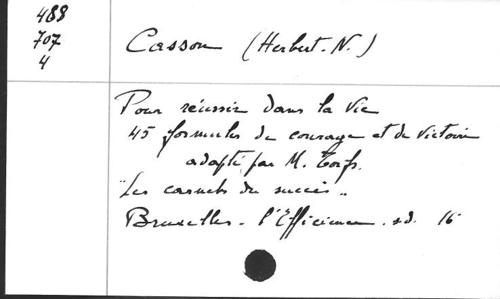 488
707
4
Casson (Herbert-N.)
Pour réussir dans la vie
45 formules de courage et de victoire
adapté par M. Torfs.
"Les carnets du succès".
Bruxelles - l'Efficience. sd. 16°